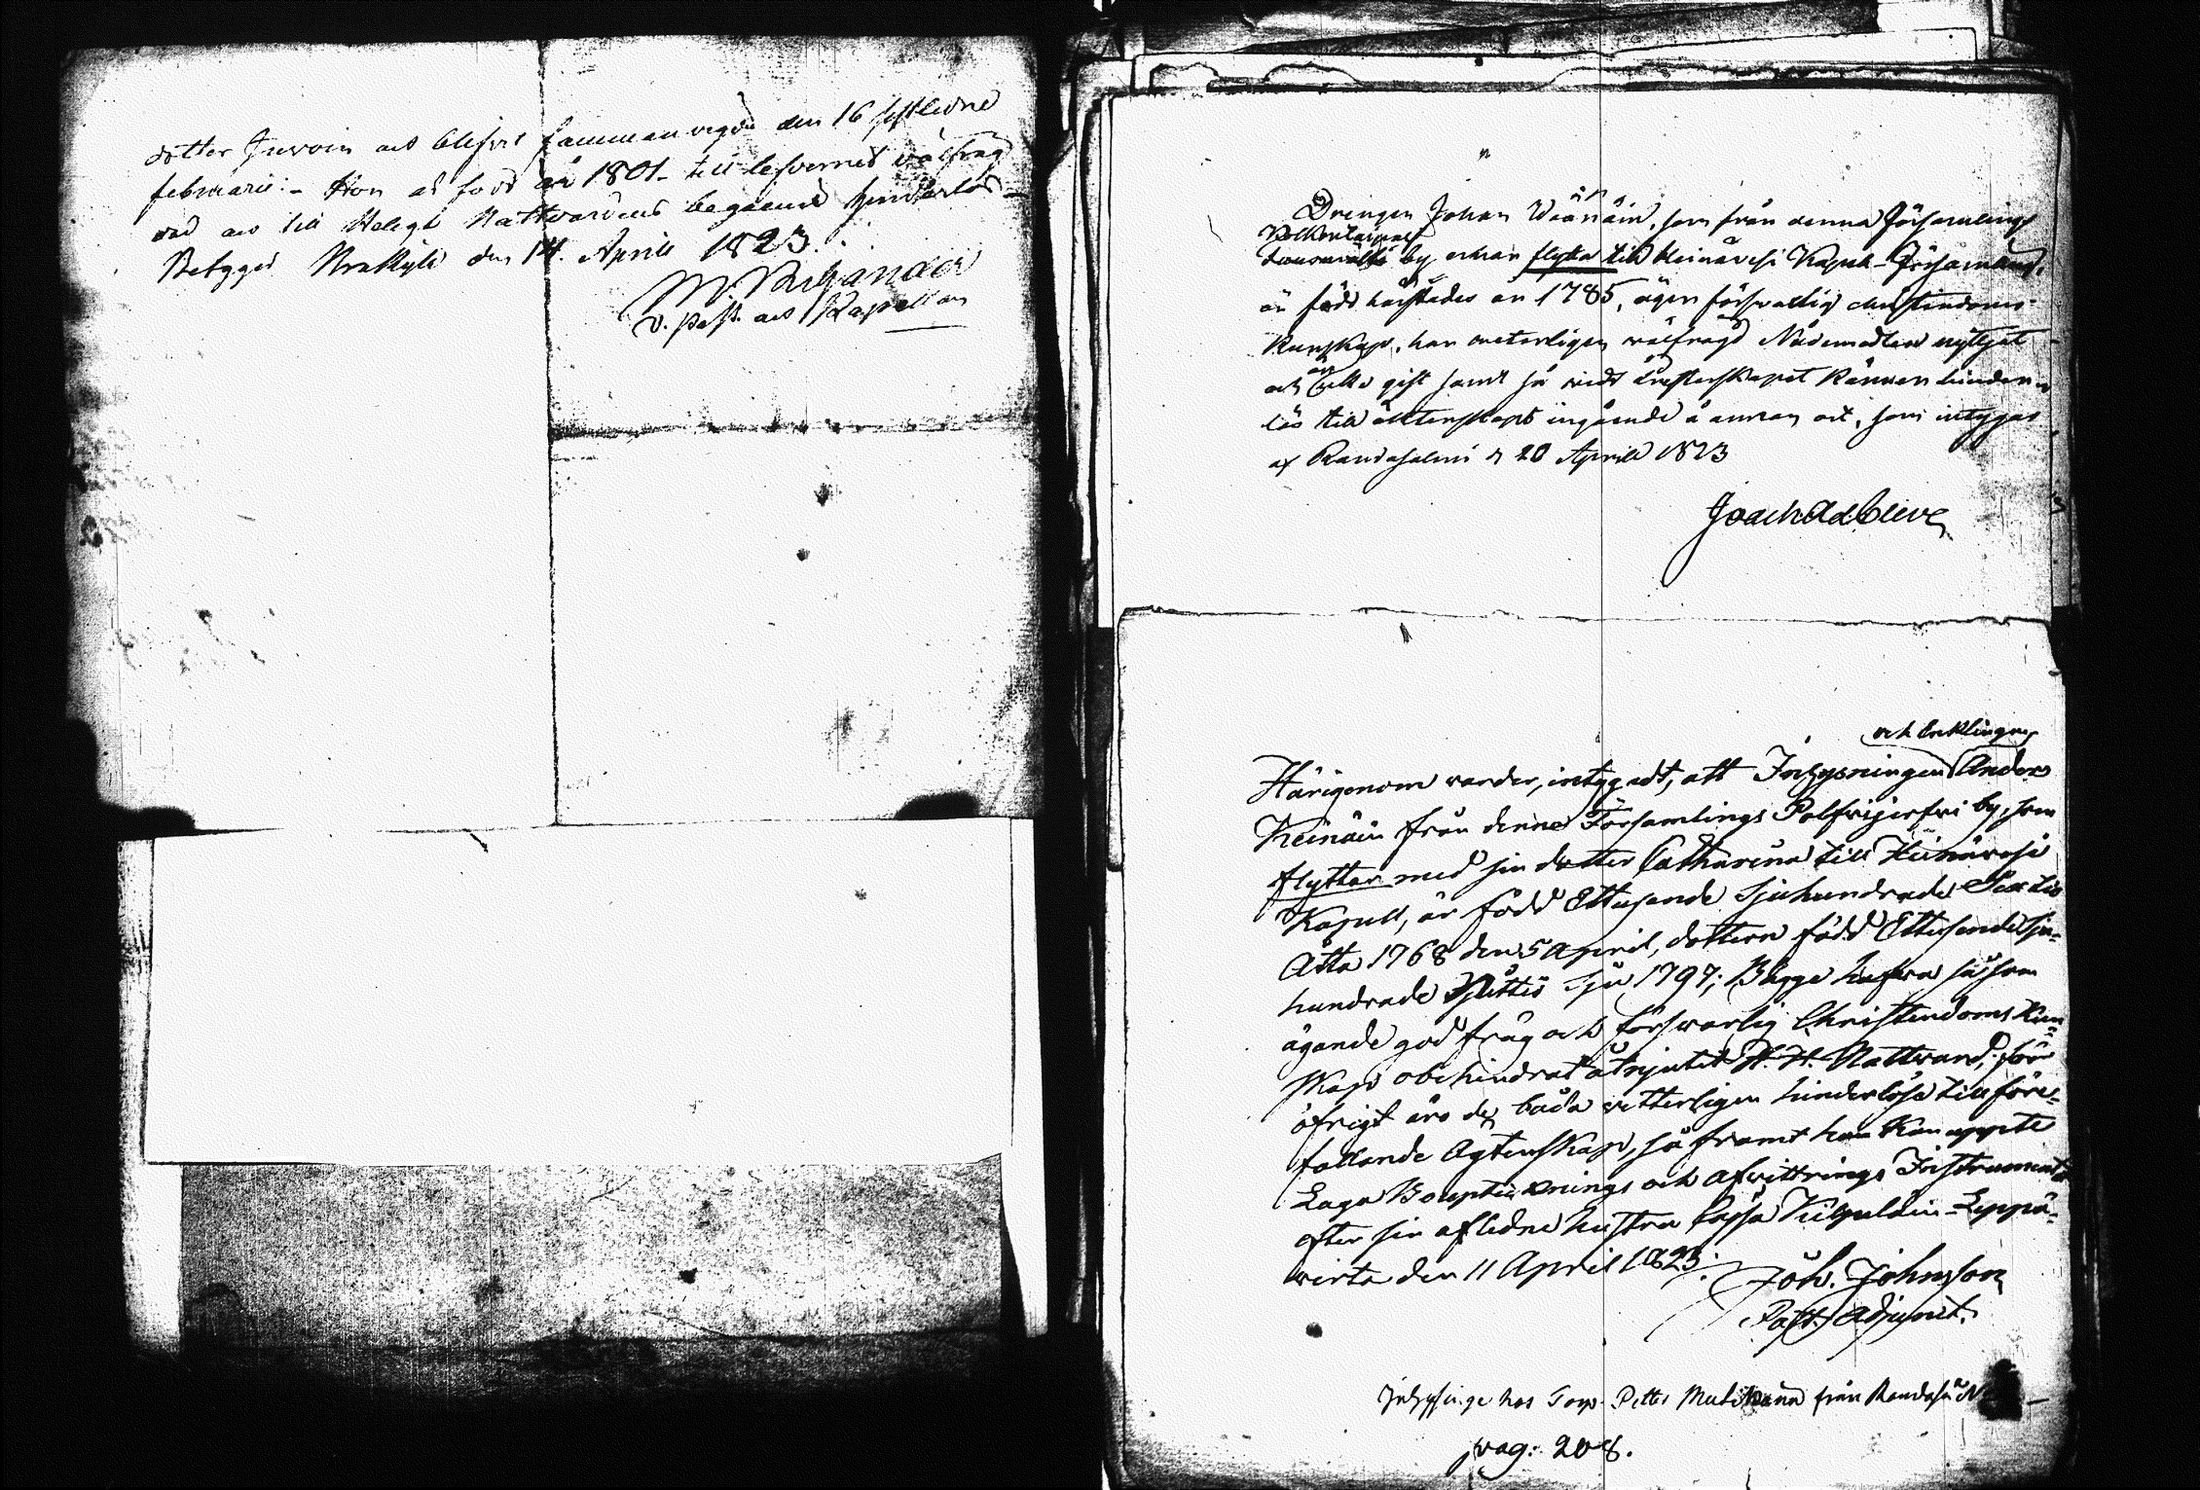 dotter Juvoin och blifvit sammanvigde den 16 sistledne
februarii:- Hon är född år 1801- till lefvernet välfräg
dad och till Heligt Nattvardens begående hinderlös -
Betygar Kräkylä den 14. Aprill 1823.
v. past. och Kapellan
Drengen Johan Wäänäin, som från denna Församlings
by ärnar flytta till Heinävesi Kapell-Församling,
är född härstädes år 1785, äger försvarlig christendoms-
kunskap, har veterligen välfrägd Nådemedlen nyttjat
och är gift samt så vidt känner hinder-
lös till äktenskaps ingående å annan ort, som intygas
af Randasalmi d 20 Aprill 1823
och Enklingen
Härigenom warder intygadt, att Inhysningen Anders
Keinäin från denna Församlings by, som
flyttar med sin dotter Catharina till Heinävesi
Kapell, är född Ettusende Sjuhundrade Sextio
Åtta 1768 den 5 April, dottern född Ettusende Sju-
hundrade Nittio Sju 1797; Bägge hafva såsom
ägande god fräg och försvarlig Christendoms Kun-
skap obehindrat åtnjutit H. H. Nattvard; för
öfrigt äro de båda vitterligen hinderlöse till före-
fallande Ägtenskap, så framt han kan uppte
Laga Boupteknings och afvittrings Instrument
efter sin aflidne hustru Cajsa Leppä-
virta den 11 April 1823.
Joh. Johnsson
Past. Adjunct.
Inhysinge hos Torp. Petter från
pag: 208.